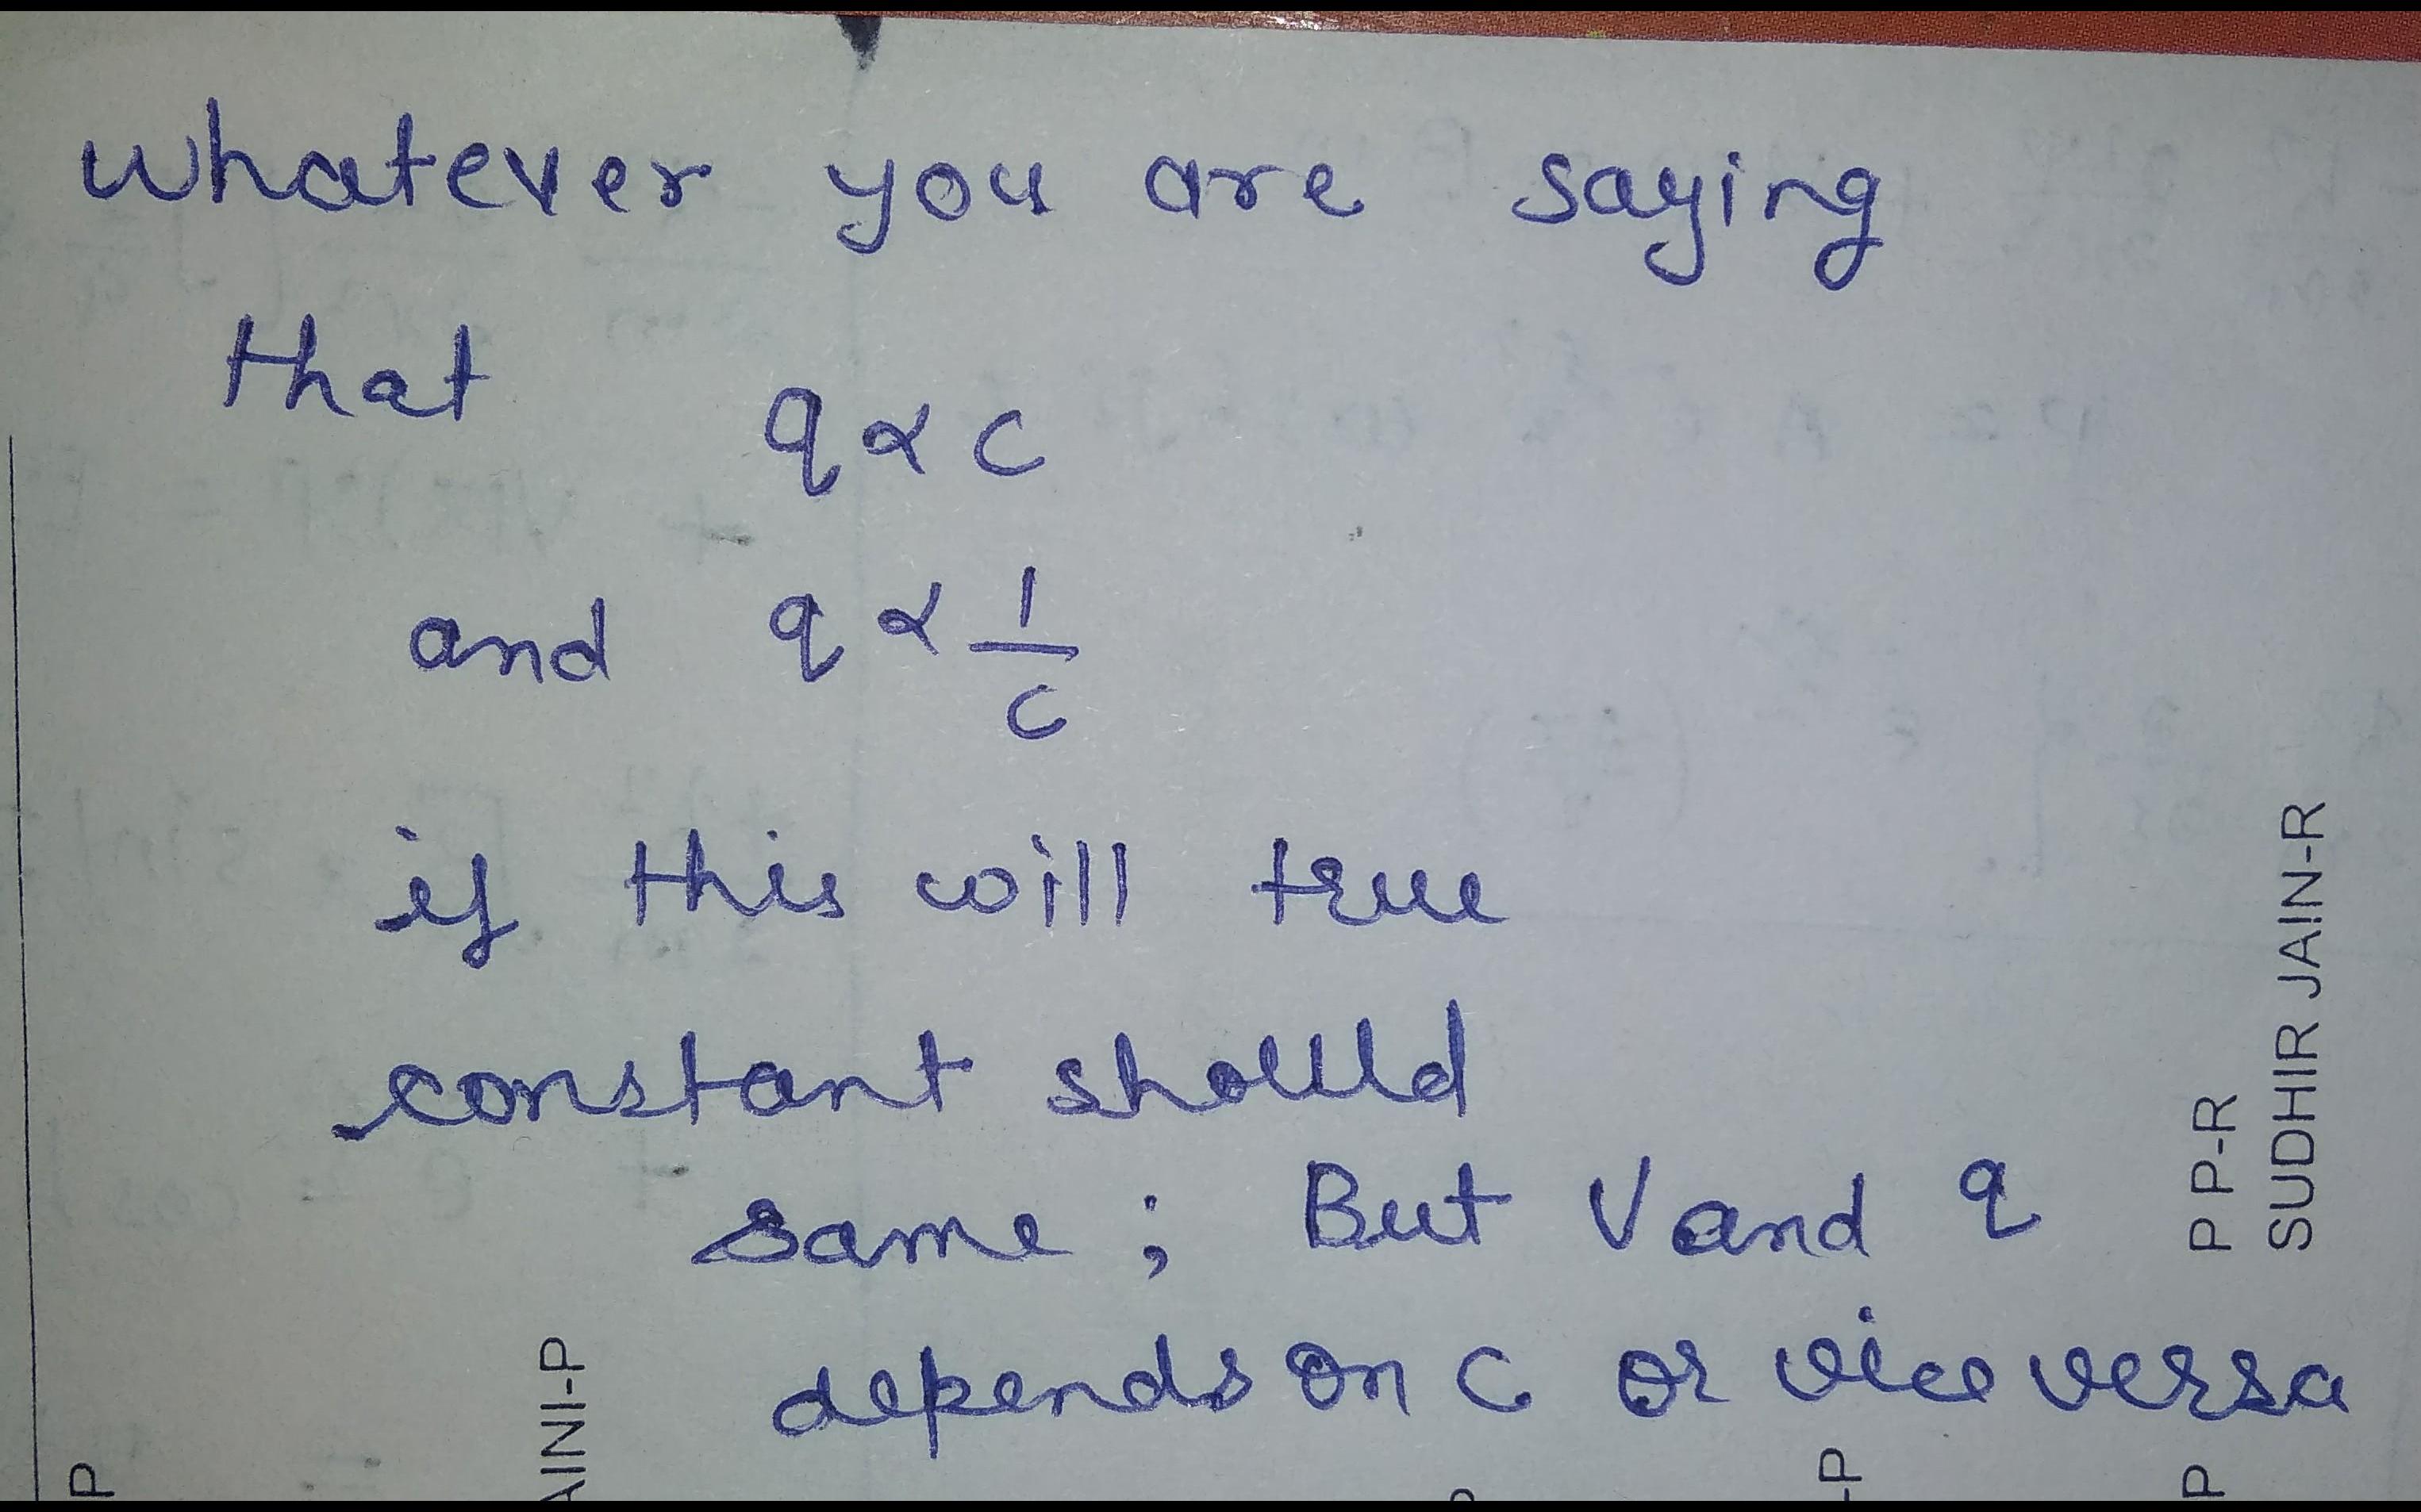 whatever you are saying
that q ∝ c
and q ∝ 1/c
if this will true
constant should
same ; But V and q
depends on c or vice versa
P P-R
SUDHIR JAIN-R
AINI-P
P
-P
P